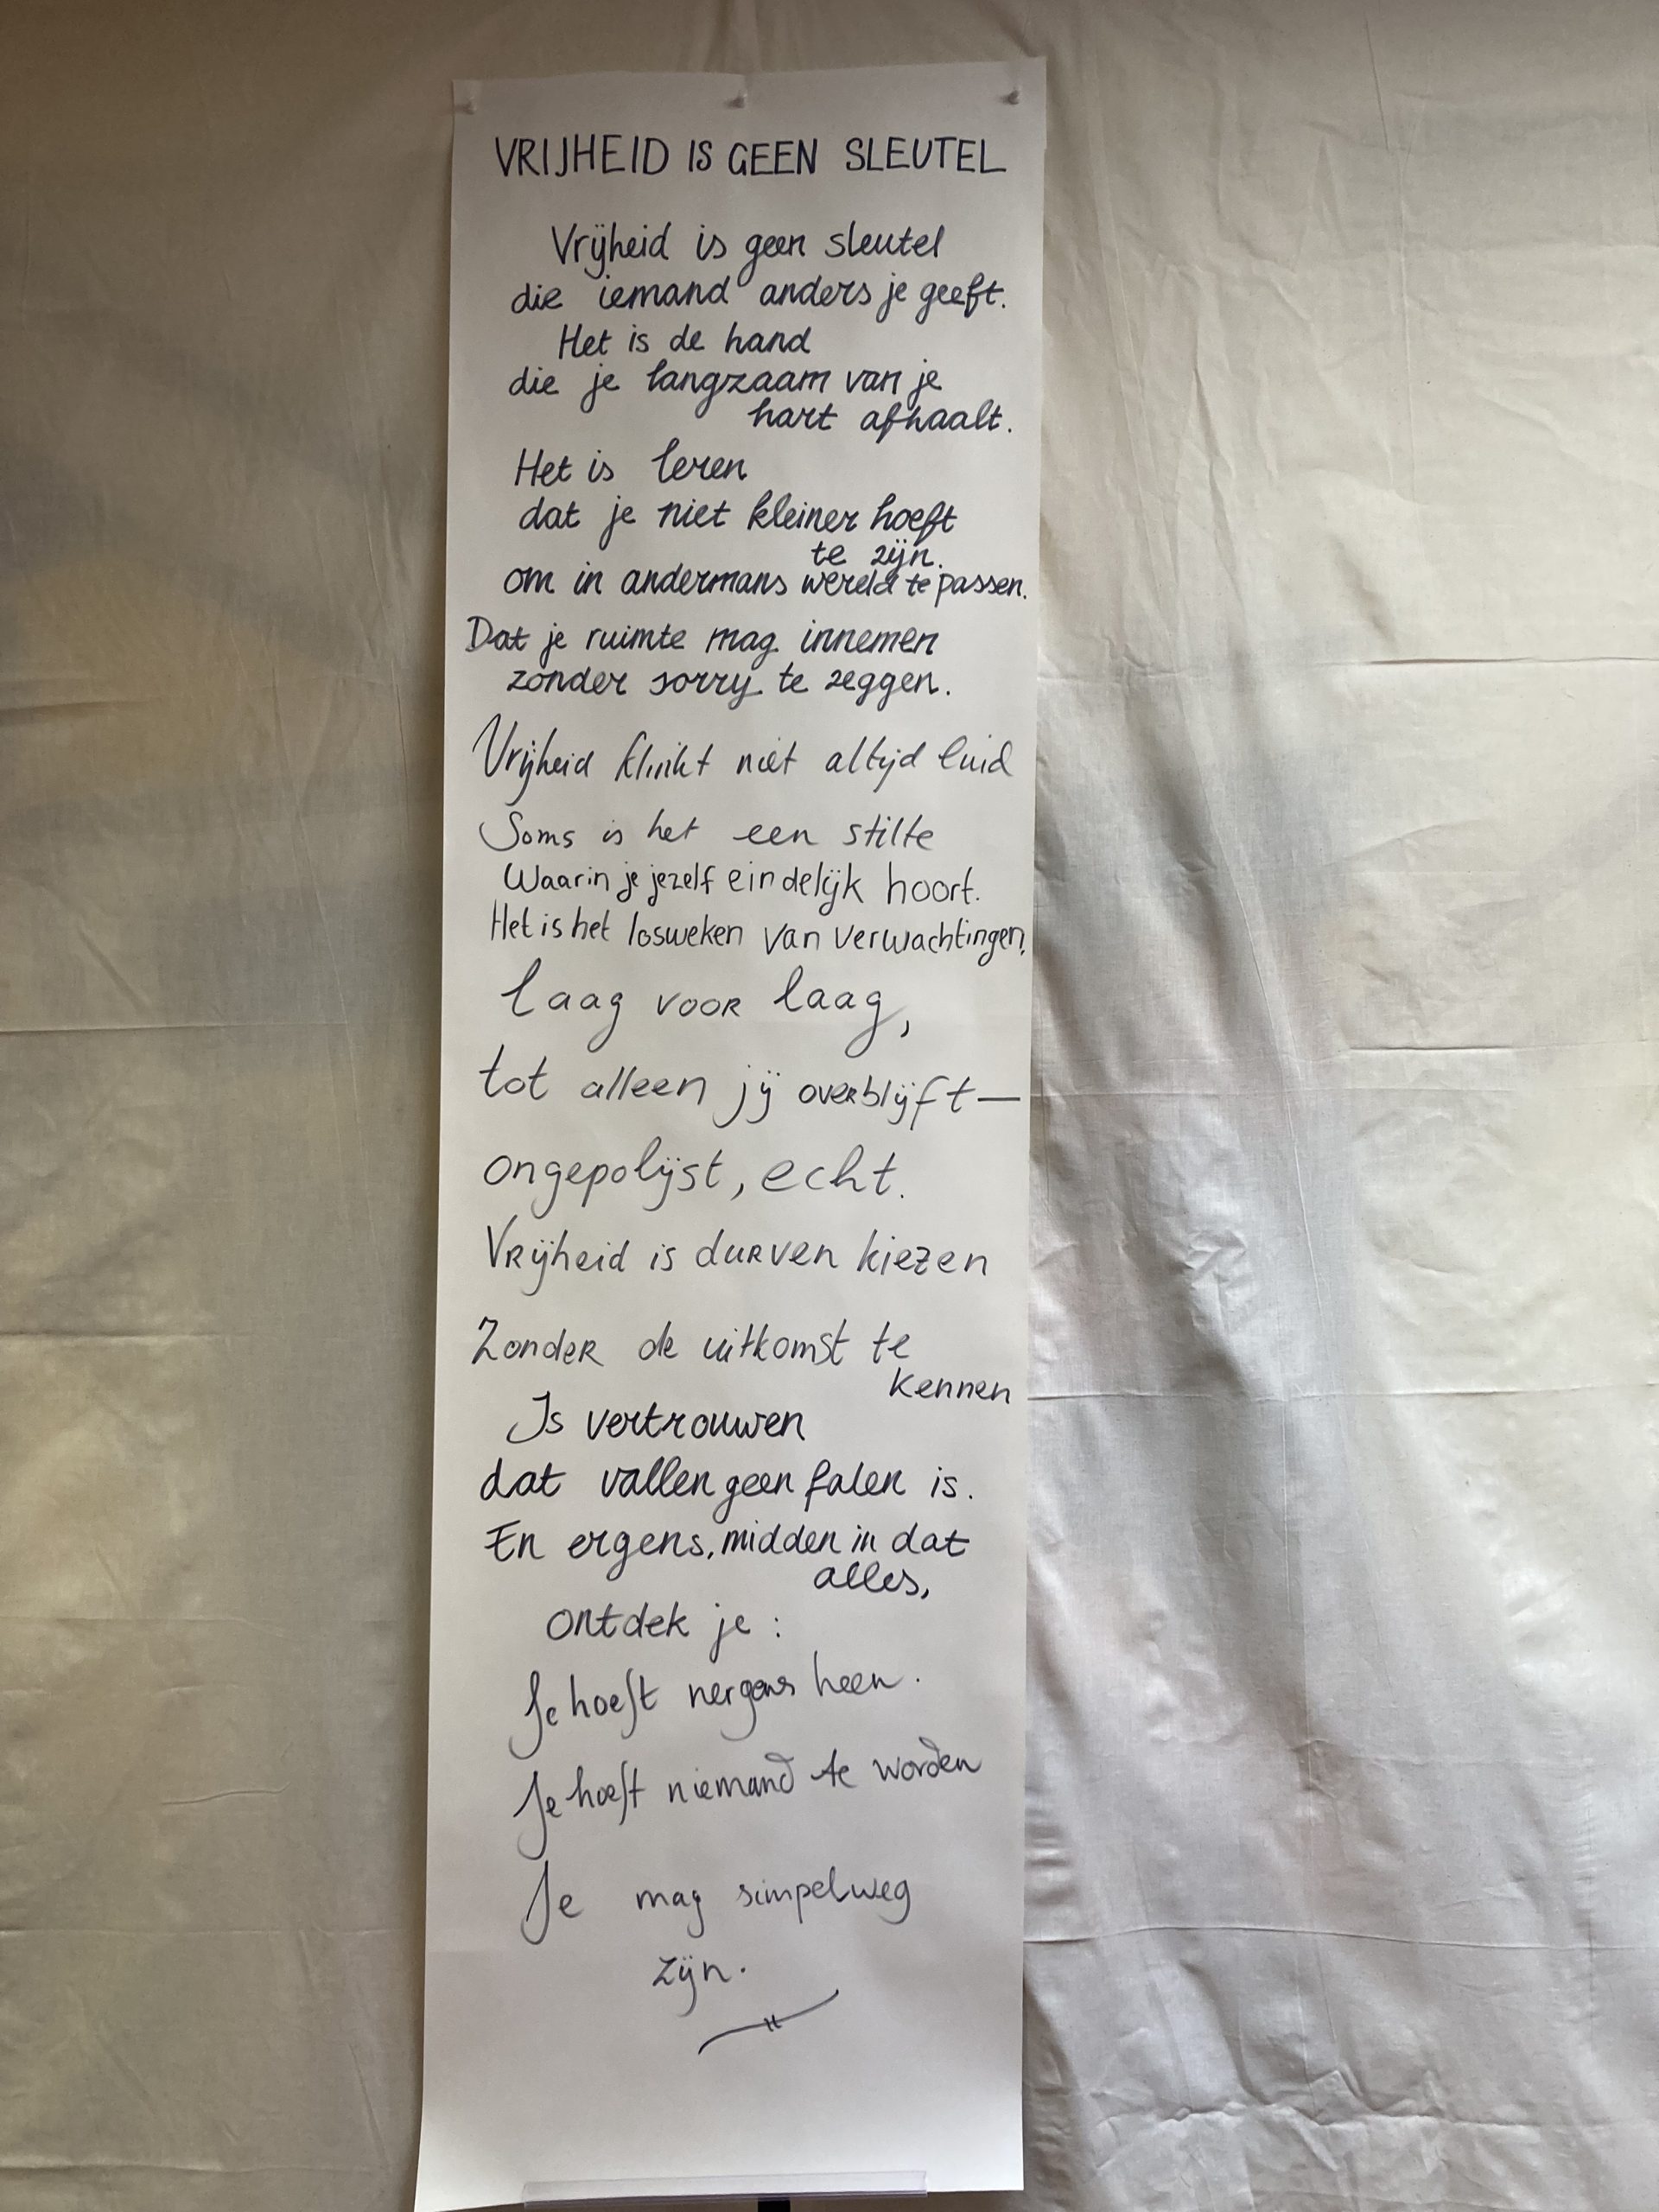 VRIJHEID IS GEEN SLEUTEL
Vrijheid is geen sleutel
die iemand anders je geeft.
Het is de hand
die je langzaam van je
hart afhaalt.
Het is leren
dat je niet kleiner hoeft
te zijn.
om in andermans wereld te passen.
Dat je ruimte mag innemen
zonder sorry te zeggen.
Vrijheid klinkt niet altijd luid
Soms is het een stilte
Waarin je jezelf eindelijk hoort.
Het is het losweken van verwachtingen,
laag voor laag,
tot alleen jij overblijft—
ongepolijst, echt.
Vrijheid is durven kiezen
Zonder de uitkomst te
kennen
Is vertrouwen
dat vallen geen falen is.
En ergens, midden in dat
alles,
ontdek je:
Je hoeft nergens heen.
Je hoeft niemand te worden
Je mag simpelweg
zijn.